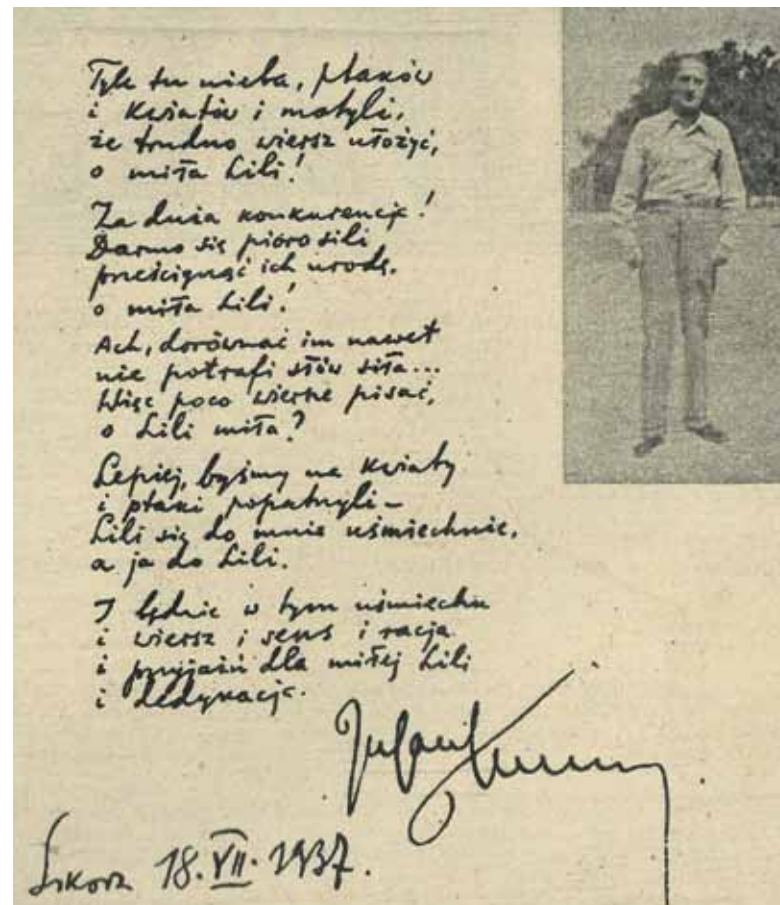 Tyle tu nieba, ptaków
i kwiatów i motyli,
że trudno wiersz ułożyć,
o miła Lili!
Za duża konkurencja!
Darmo się pióro sili
prześcignąć ich urodę,
o miła Lili!
Ach, dorównać im nawet
nie potrafi słów siła...
Więc poco wiersze pisać,
o Lili miła?
Lepiej, byśmy na kwiaty
i ptaki popatrzyli –
Lili się do mnie uśmiechnie,
a ja do Lili.
I będzie w tym uśmiechu
i wiersz i sens i racja
i przyjaźń dla miłej Lili
i dedykacja.
Julian Tuwim
Sikorz 18.VII.1937.